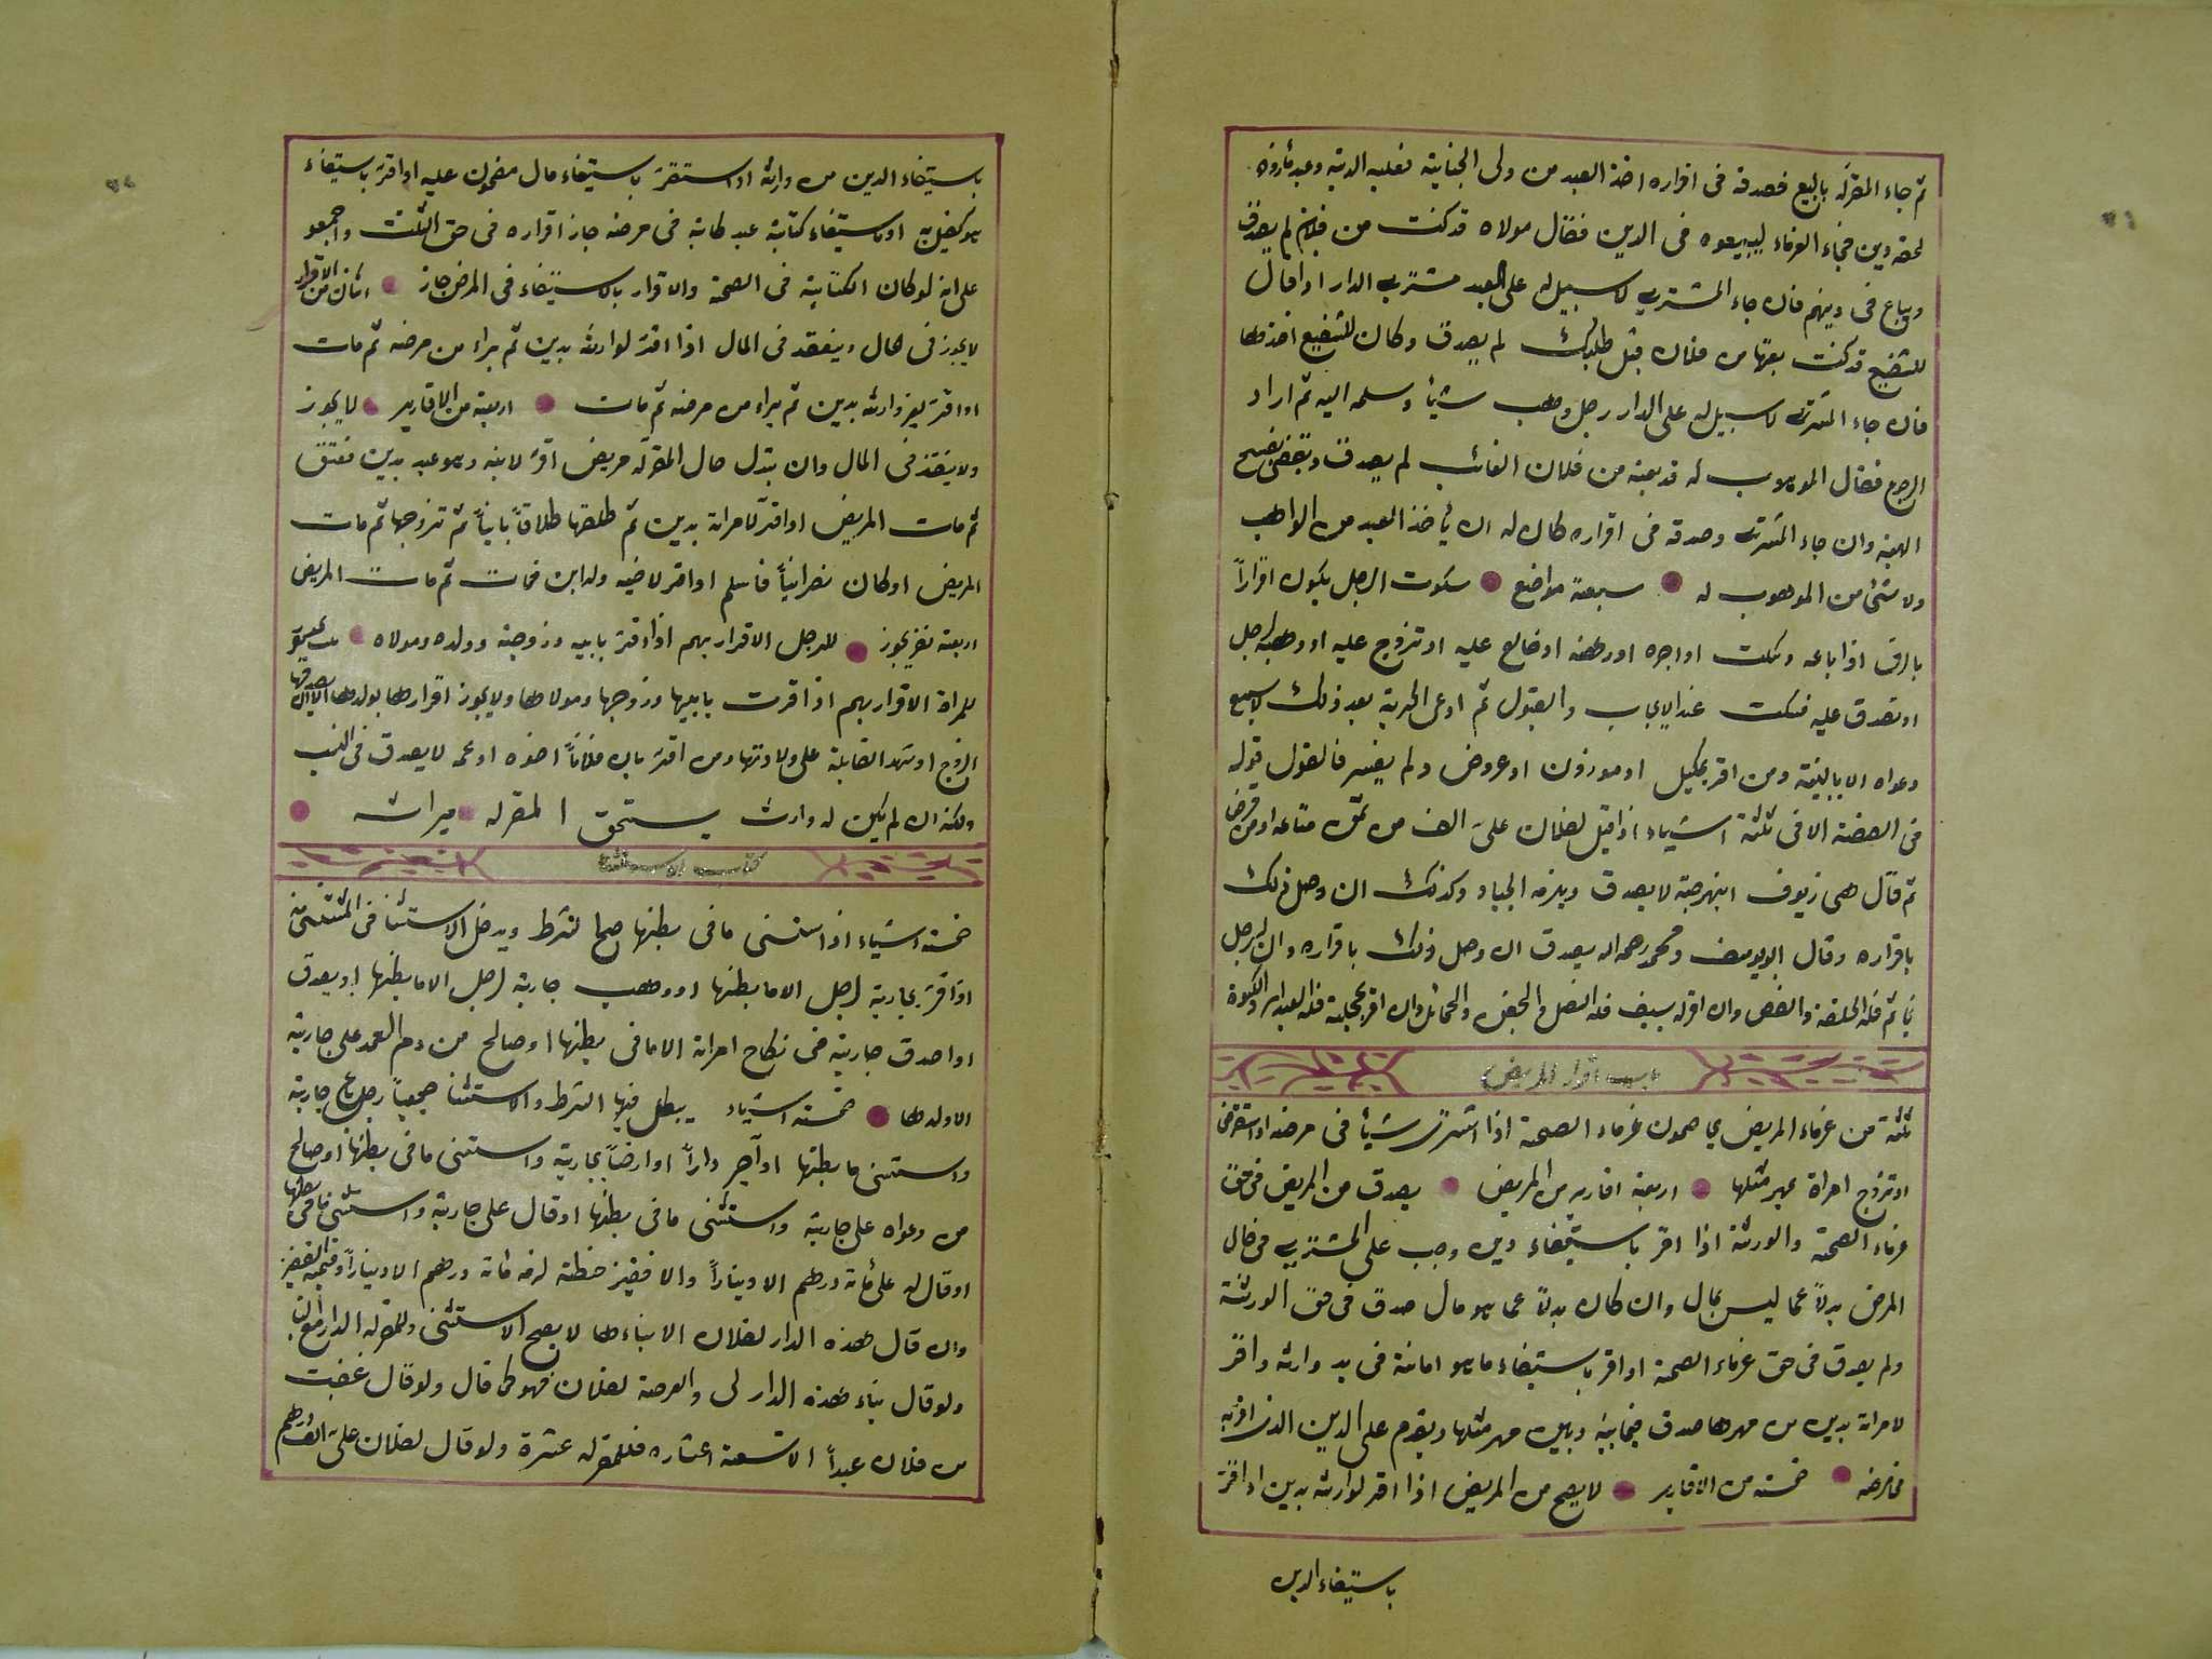 ثم جاء المقر له بالبيع فصدقه في اقراره اخذ العبد من ولى الجناية فعليه الدية وعبد مأذون
لحقه دين فجاء الغرماء ليبيعوه في الدين فقال مولاه قد كنت من فلان لم يصدق
ويباع في دينهم فان جاء المشترى لا سبيل له على العبد مشترى الدار اذا قال
للشفيع قد كنت بعتها من فلان قبل طلبك لم يصدق وكان للشفيع اخذها
فان جاء المشترى لا سبيل له على الدار رجل وهب شيأ وسلمه اليه ثم اراد
الرجوع فقال الموهوب له قد بعته من فلان الغائب لم يصدق
الهبة وان جاء المشترى وصدقه في اقراره كان له ان يأخذ العبد من الواهب
ولا شئ من الموهوب له سبعة مواضع سكوت الرجل يكون اقراراً
بالرق اذا باعه وسكت او اجره او رهنه او خالع عليه او تزوج عليه او وهبه لرجل
او تصدق عليه فسكت عند الايجاب والقبول ثم ادعى الحرية بعد ذلك لا يسمع
دعواه الا بالبينة ومن اقر بمكيل او موزون او عروض ولم يفسر فالقول قوله
في الصفة الا في ثلثة اشياء اذا قيل لفلان علىّ الف من ثمن متاعه او من قرض
ثم قال هى زيوف او نبهرجة لا يصدق ويلزمه الجياد وكذلك ان وصل ذلك
باقراره وقال ابو يوسف ومحمد رحمه الله يصدق ان وصل ذلك باقراره وان لرجل
بخاتم فله الحلقة والفص وان اقر له بسيف فله النصل والجفن والحمائل وان اقر بحجلة فله العيدان والكسوة
باب اقرار المريض
ثلثة من غرماء المريض يحاصون غرماء الصحة اذا اشترى شيأ في مرضه او استقرض
او تزوج امراة بمهر مثلها اربعة اقارير من المريض يصدق من المريض في حق
غرماء الصحة والورثة اذا اقر باستيفاء دين وجب على المشترى في حال
المرض بدلاً عما ليس بمال وان كان بدلاً عما هو مال صدق في حق الورثة
ولم يصدق في حق غرماء الصحة او اقر باستيفاء ما هو امانة في يد وارثه واقر
لامراته بدين من مهرها صدق فيما بينه وبين مهر مثلها ويقدم على الدين الذى اقر به
في مرضه خمسة من الاقارير لا يصح من المريض اذا اقر لوارثه بدين او اقر
باستيفاء الدين
باستيفاء الدين من وارثه او استقر باستيفاء مال مضمون عليه او اقر باستيفاء
هو كفيل به او باستيفاء كتابة عبد كاتبه في مرضه جاز اقراره في حق الثلث واجمعو
على انه لو كان الكتابة في الصحة والاقرار بالاستيفاء في المرض جاز اثنان من الاقرار
لا يجوز في الحال وينفقد في المال اذا اقر لوارثه بدين ثم براء من مرضه ثم مات
او اقر لغير وارثه بدين ثم براء من مرضه ثم مات اربعة من الاقارير لا يجوز
ولا ينفذ في المال وان بتدل حال المقر له مريض اقر لابنه وهو عبد بدين فعتق
ثم مات المريض او اقر لامراته بدين ثم طلقها طلاقاً بايناً ثم تزوجها ثم مات
المريض او كان نصرانياً فاسلم او اقر لاخيه وله ابن فمات ثم مات المريض
اربعة نفر يجوز للرجل الاقرار بهم اذا اقر بابيه وزوجته وولده ومولاه
للمراة الاقرار بهم اذا اقرت بابيها وزوجها ومولاها ولا يجوز اقرارها بولدها الا ان يصدقها
الزوج او تشهد القابلة على ولادتها ومن اقر بان فلاناً اخوه او عمه لا يصدق في النسب
ولكنه ان لم يكن له وارث يستحق المقر له ميراثه
كتاب الاستثنا
خمسة اشياء اذا استثنى ما في بطنها صحا لشرط ويدخل الاستثنا في المستثنى منه
اذا اقر بجارية لرجل الا ما بطنها او وهب جارية لرجل الا ما بطنها او يصدق
او اصدق جارية في نكاح امراة الا ما في بطنها او صالح من دم العمد على جارية
الا ولدها خمسة اشياء يبطل فيها الشرط والاستثنا جميعاً رجل باع جارية
واستثنى ما بطنها او آجر داراً او ارضاً بجارية واستثنى ما في بطنها او صالح
من دعواه على جارية واستثنى ما في بطنها او قال على جارية واستثنى ما في بطنها
او قال له على مأة درهم الا ديناراً والا قفيز حنطة لزمه مائة درهم الا ديناراً وقيمة القفيز
وان قال هذه الدار لفلان الا بناءها لا يصح الاستثنى وللمقر له الدار مع البناء
ولو قال بناء هذه الدار لى والعرصة لفلان فهو كما قال ولو قال غصبت
من فلان عبداً الا تسعة اعشاره فللمقر له عشرة ولو قال لفلان علىّ الف درهم